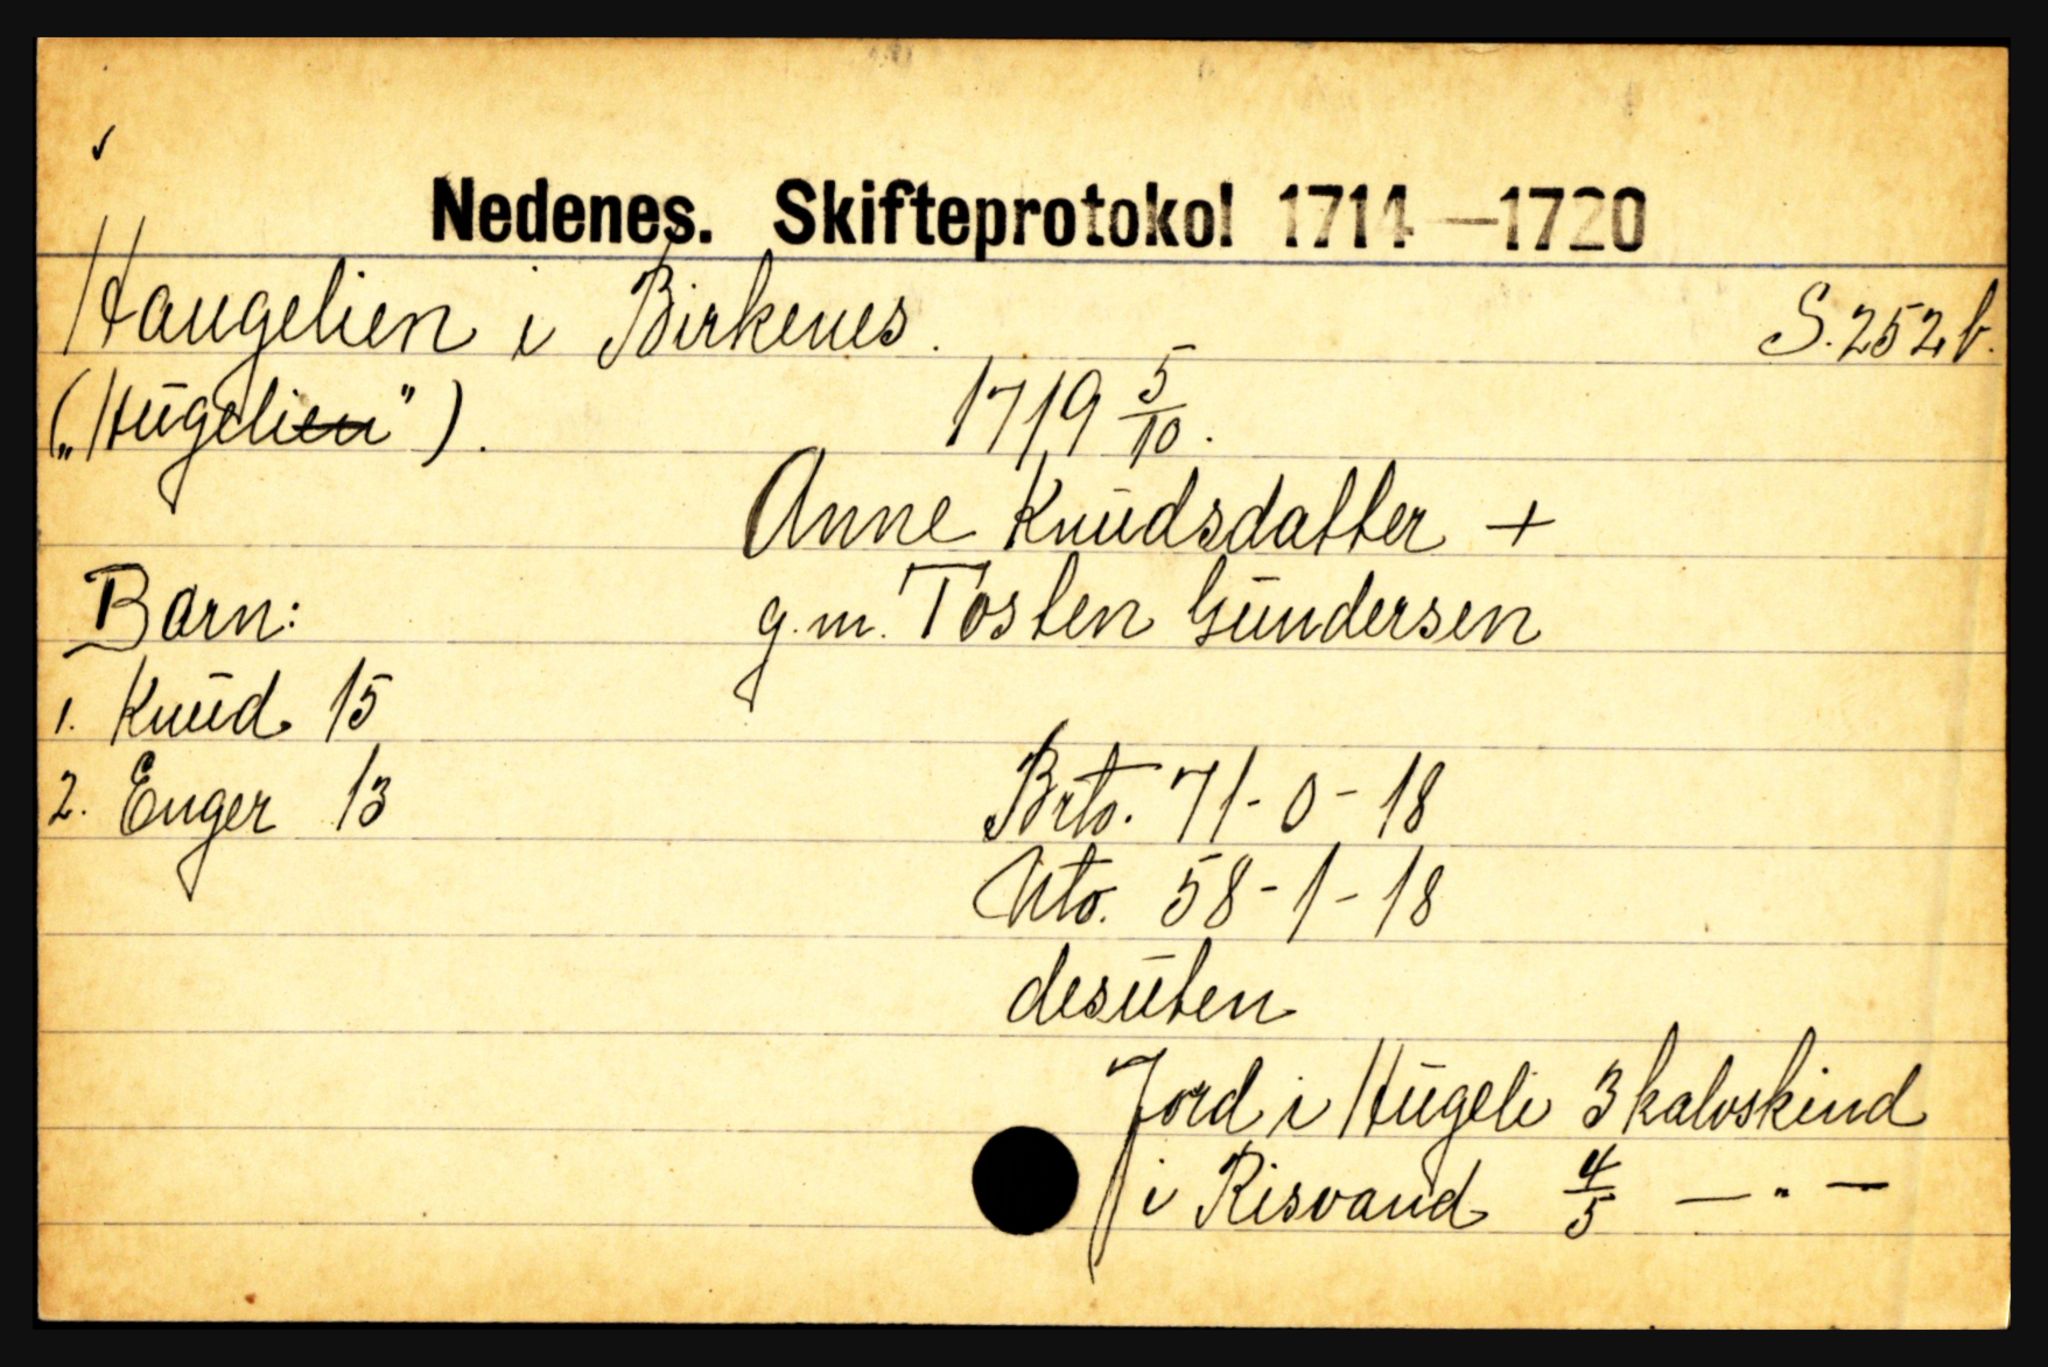 Nedenes. Skifteprotokol 1714—1720
Haugelien i Birkenes. S. 252 b.
("Hugelien"). 1719 5/10.
Anne Knudsdatter +
Barn: g.m. Tosten Gundersen
1. Knud 15
2. Enger 13 Brto. 71-0-18
Nto. 58-1-18
desuten
Jord i Hugeli 3 kalvskind
i Risvand 4/5 — " —